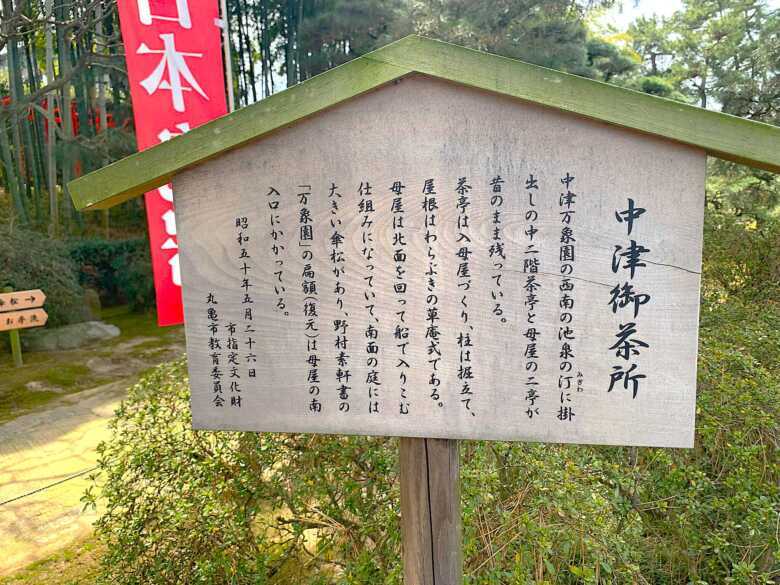 中津御茶所
中津万象園の西南の池泉の汀に掛
みぎわ
出しの中二階茶亭と母屋の二亭が
昔のまま残っている。
茶亭は入母屋づくり、柱は掘立て、
屋根はわらぶきの草庵式である。
母屋は北面を回って船で入りこむ
仕組みになっていて、南面の庭には
大きい傘松があり、野村素軒書の
「万象園」の扁額(復元)は母屋の南
入口にかかっている。
昭和五十年五月二十六日
市指定文化財
丸亀市教育委員会
日本